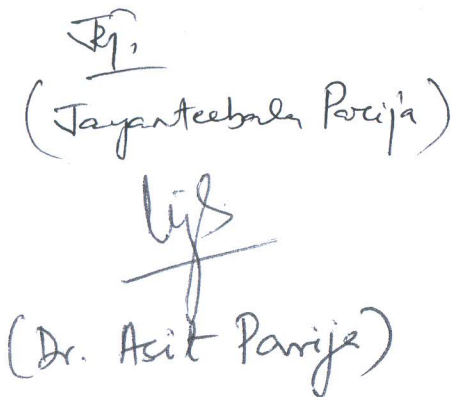 (Jayanteebala Parija)
(Dr. Asit Parija)